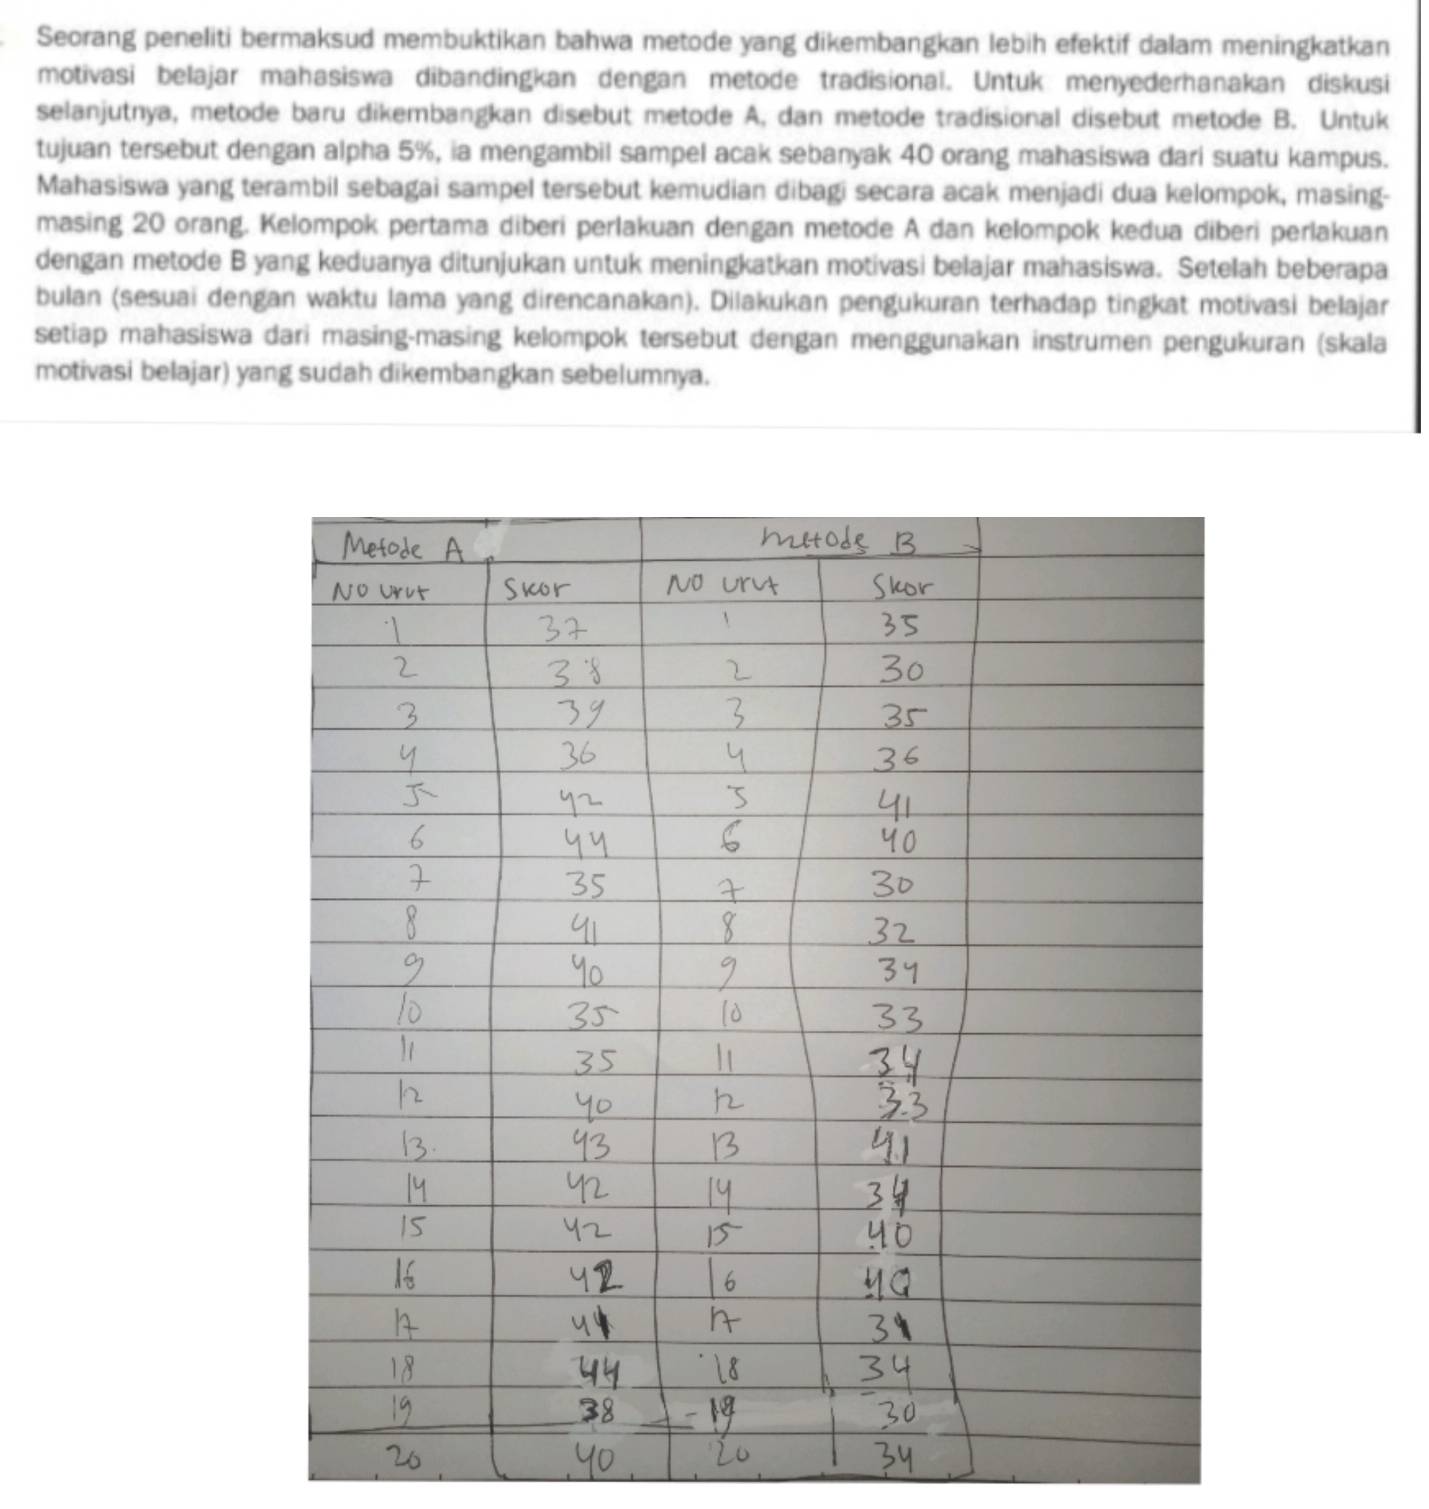 Seorang peneliti bermaksud membuktikan bahwa metode yang dikembangkan lebih efektif dalam meningkatkan
motivasi belajar mahasiswa dibandingkan dengan metode tradisional. Untuk menyederhanakan diskusi
selanjutnya, metode baru dikembangkan disebut metode A, dan metode tradisional disebut metode B. Untuk
tujuan tersebut dengan alpha 5%, ia mengambil sampel acak sebanyak 40 orang mahasiswa dari suatu kampus.
Mahasiswa yang terambil sebagai sampel tersebut kemudian dibagi secara acak menjadi dua kelompok, masing-
masing 20 orang. Kelompok pertama diberi perlakuan dengan metode A dan kelompok kedua diberi perlakuan
dengan metode B yang keduanya ditunjukan untuk meningkatkan motivasi belajar mahasiswa. Setelah beberapa
bulan (sesuai dengan waktu lama yang direncanakan). Dilakukan pengukuran terhadap tingkat motivasi belajar
setiap mahasiswa dari masing-masing kelompok tersebut dengan menggunakan instrumen pengukuran (skala
motivasi belajar) yang sudah dikembangkan sebelumnya.
Metode A Metode B
No urut Skor No urut Skor
1 37 1 35
2 38 2 30
3 39 3 35
4 36 4 36
5 42 5 41
6 44 6 40
7 35 7 30
8 41 8 32
9 40 9 34
10 35 10 33
11 35 11 34
12 40 12 33
13. 43 13 41
14 42 14 34
15 42 15 40
16 42 16 40
17 17
18 44 18 34
19 38 19 30
20 40 20 34